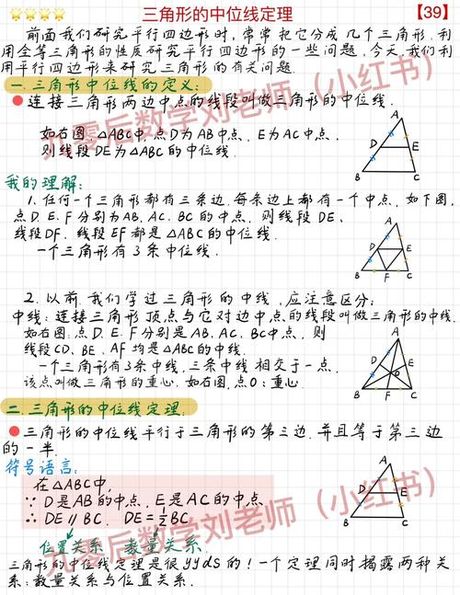 三角形的中位线定理
【39】
前面我们研究平行四边形时,常常把它分成几个三角形.利
用全等三角形的性质研究平行四边形的一些问题.今天,我们利
用平行四边形来研究三角形的有关问题.
一.三角形中位线的定义:
连接三角形两边中点的线段叫做三角形的中位线.
如右图.△ABC中,点D为AB中点,E为AC中点.
则线段DE为△ABC的中位线.
A
D
E
B
C
我的理解:
1.任何一个三角形都有三条边.每条边上都有一个中点.如下图,
点D.E.F分别为AB.AC.BC的中点,则线段DE、
线段DF、线段EF都是△ABC的中位线.
一个三角形有3条中位线.
A
D
E
B
F
C
2.以前,我们学过三角形的中线,应注意区分:
中线:连接三角形顶点与它对边中点的线段叫做三角形的中线.
如右图.点D、E、F分别是AB、AC、BC中点,则
线段CD、BE、AF均是△ABC的中线.
一个三角形有3条中线,三条中线相交于一点.
该点叫做三角形的重心.如右图,点O:重心
A
D
E
B
F
C
二.三角形的中位线定理.
三角形的中位线平行于三角形的第三边.并且等于第三边
的一半.
符号语言:
在△ABC中,
∵ D是AB的中点,E是AC的中点
∴ DE∥BC, DE=½BC
位置关系 数量关系
A
D
E
B
C
三角形的中位线定理是很yyds的!一个定理同时揭露两种关
系:数量关系与位置关系.
九零后数学刘老师(小红书)
九零后数学刘老师(小红书)